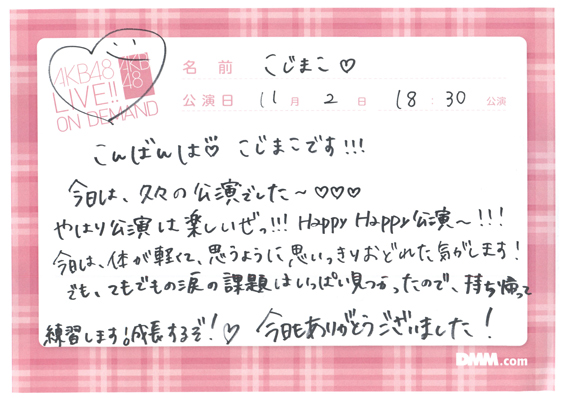 AKB48
LIVE!!
ON DEMAND
AKB
48
名前 こじまこ♡
公演日 11月2日 18:30公演
こんばんは♡ こじまこです!!!
今日は、久々の公演でした〜♡♡♡
やはり公演は楽しいぜっ!!! Happy Happy公演〜!!!
今日は、体が軽くて、思うように思いっきりおどれた気がします!
でも、でもでもの涙の課題はいっぱい見つかったので、持ち帰って
練習します!成長するぞ!♡ 今日もありがとうございました!
DMM.com